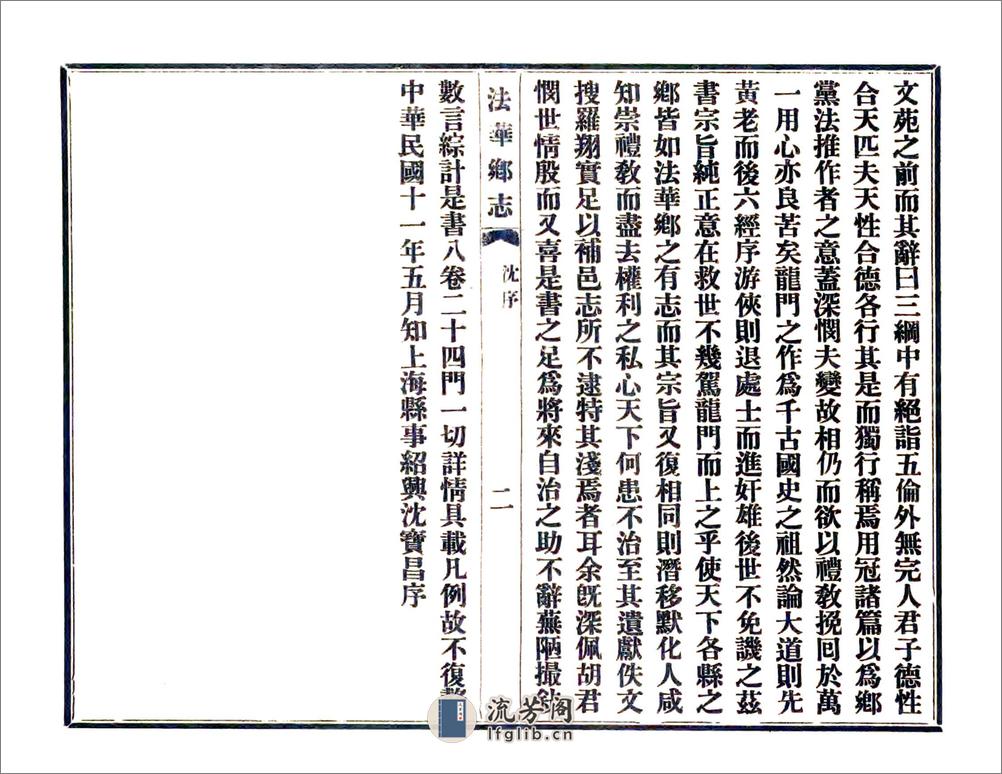 文苑之前而其辭曰三綱中有絕詣五倫外無完人君子德性
合天匹夫天性合德各行其是而獨行稱焉用冠諸篇以爲鄉
黨法推作者之意蓋深憫夫變故相仍而欲以禮教挽回於萬
一用心亦良苦矣龍門之作爲千古國史之祖然論大道則先
黃老而後六經序游俠則退處士而進奸雄後世不免譏之茲
書宗旨純正意在救世不幾駕龍門而上之乎使天下各縣之
鄉皆如法華鄉之有志而其宗旨又復相同則潛移默化人咸
知崇禮教而盡去權利之私心天下何患不治至其遺獻佚文
搜羅翔實足以補邑志所不逮特其淺焉者耳余旣深佩胡君
憫世情殷而又喜是書之足爲將來自治之助不辭蕪陋撮
法華鄉志
沈序
二
數言綜計是書八卷二十四門一切詳情具載凡例故不復
中華民國十一年五月知上海縣事紹興沈寶昌序
流芳阁
lfglib.cn